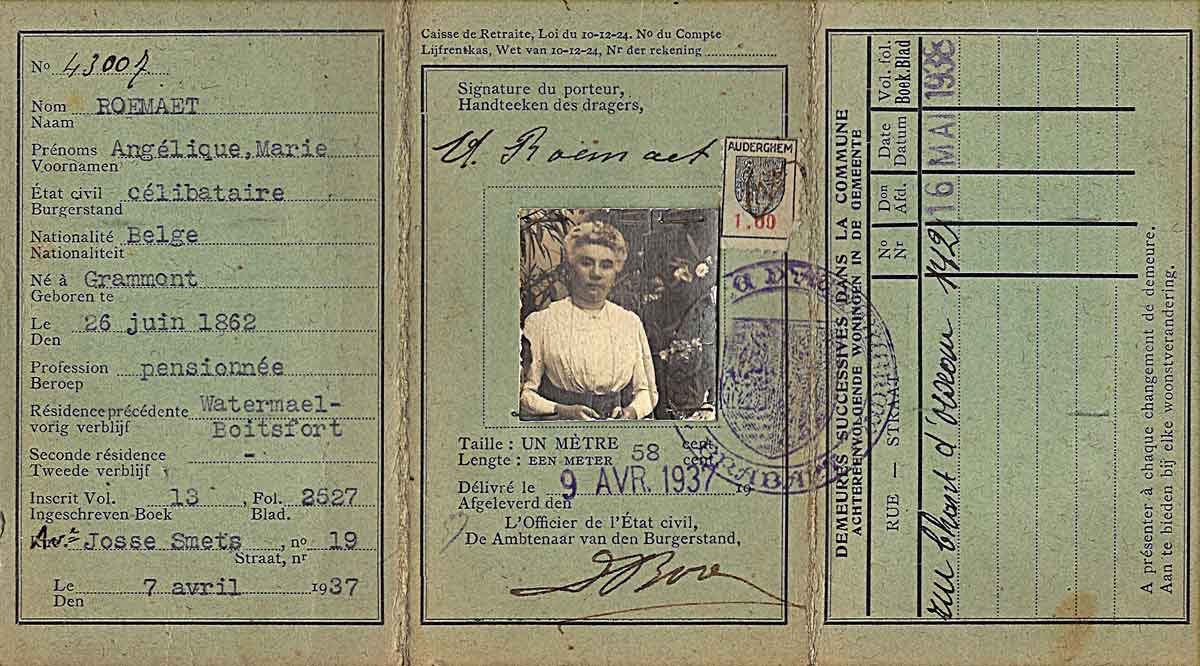 No 43007
Nom ROEMAET
Naam
Prénoms Angélique,Marie
Voornamen
État civil célibataire
Burgerstand
Nationalité Belge
Nationaliteit
Né à Grammont
Geboren te
Le 26 juin 1862
Den
Profession pensionnée
Beroep
Résidence précédente Watermael-
vorig verblijf Boitsfort
Seconde résidence -
Tweede verblijf
Inscrit Vol. 13, Fol. 2527
Ingeschreven Boek Blad.
Josse Smets, no 19
Straat, nr
Le 7 avril 1937
Den
Caisse de Retraite, Loi du 10-12-24. No du Compte
Lijfrentkas, Wet van 10-12-24, Nr der rekening
Signature du porteur,
Handteeken des dragers,
A. Roemaet
AUDERGHEM
1.00
Taille : UN MÈTRE 58 cent.
Lengte : EEN METER cent.
Délivré le 9 AVR. 1937 19
Afgeleverd den
L'Officier de l'État civil,
De Ambtenaar van den Burgerstand,
DEMEURES SUCCESSIVES DANS LA COMMUNE
ACHTEREENVOLGENDE WONINGEN IN DE GEMEENTE
RUE — STRAAT
No
Nr
Don
Afd.
Date
Datum
Vol. fol.
Boek. Blad
rue Chant d'oiseau 142 16 MAI 1938
A présenter à chaque changement de demeure.
Aan te bieden bij elke woonstverandering.